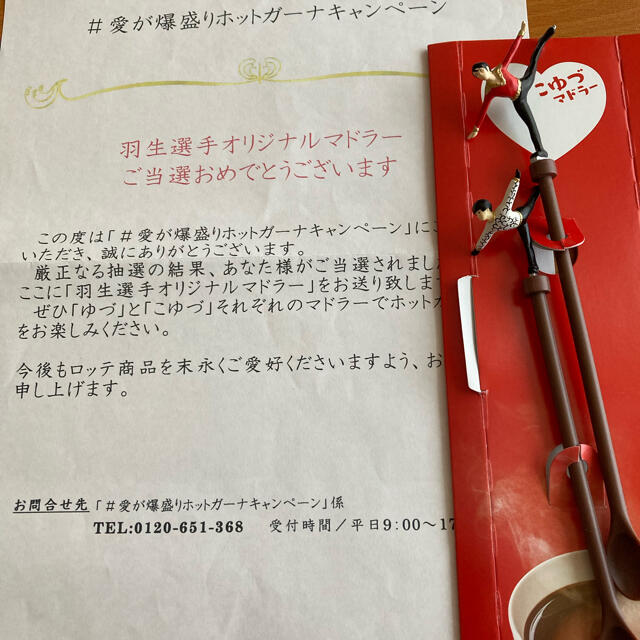 #愛が爆盛りホットガーナキャンペーン
羽生選手オリジナルマドラー
ご当選おめでとうございます
この度は「#愛が爆盛りホットガーナキャンペーン」にご
いただき、誠にありがとうございます。
厳正なる抽選の結果、あなた様がご当選されまし
ここに「羽生選手オリジナルマドラー」をお送り致しま
ぜひ「ゆづ」と「こゆづ」それぞれのマドラーでホット
をお楽しみください。
今後もロッテ商品を末永くご愛好くださいますよう、お
申し上げます。
お問合せ先「#愛が爆盛りホットガーナキャンペーン」係
TEL:0120-651-368 受付時間/平日9:00~17
こゆづ
マドラー